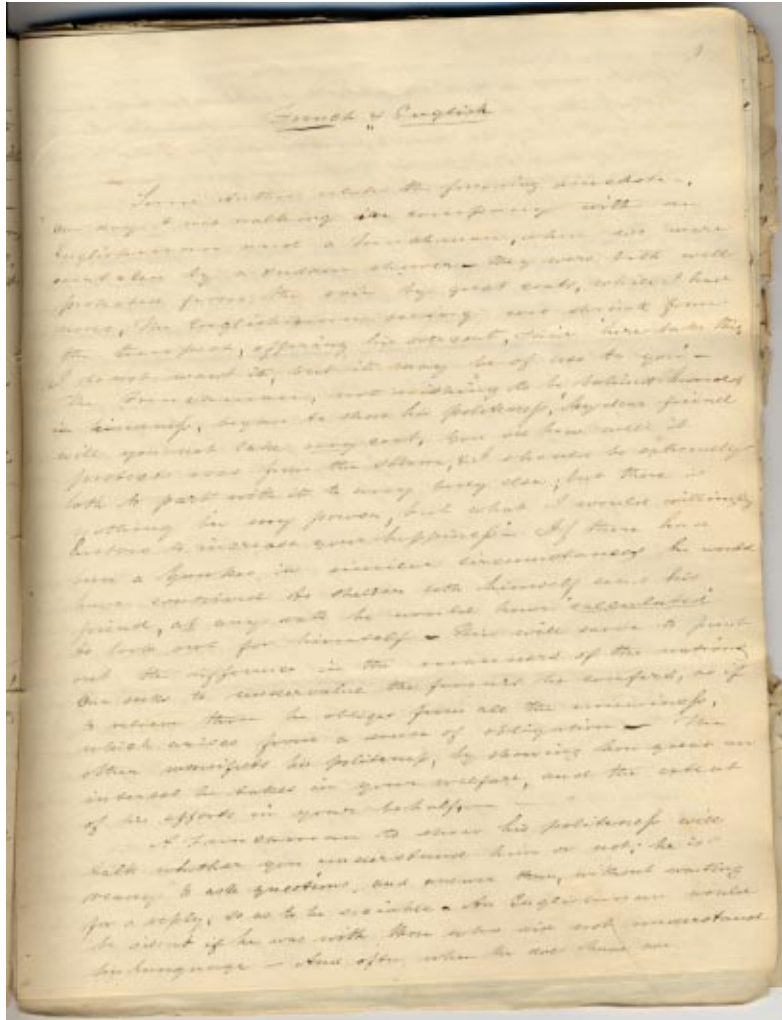 French & English
Some Author relates the following anecdote.
One day I was walking in company with an
Englishman and a Frenchman, when we were
overtaken by a sudden shower – they were both well
protected from the rain by great coats, while I had
none, The Englishman seeing me shrink from
the tempest, offering his surcoat, said 'here take this
I do not want it, but it may be of use to you' –
The Frenchman, not wishing to be behind hand
in kindness, began to show his politeness, 'My dear friend
will you not take my coat, you see how well it
protects me from the storm, & I should be extremely
loth to part with it to any body else; but there is
nothing in my power, but what I would willingly
bestow to increase your happiness' If there had
been a Yankee in similar circumstances he would
have contrived to shelter both himself and his
friend, at any rate he would have 'calculated'
to look out for himself – This will serve to point
out the difference in the manners of the nations
One seeks to undervalue the favours he confers, as if
to relieve those he obliges from all the uneasiness,
which arises from a sense of obligation – The
other manifests his politeness, by showing how great an
interest he takes in your welfare, and the extent
of his efforts in your behalf. –
A Frenchman to show his politeness will
talk whether you understand him or not; he is
to ask questions, and answer them, without waiting
for a reply, so as to be sociable – An Englishman would
be silent if he was with those who did not understand
his language – And often when he does there are